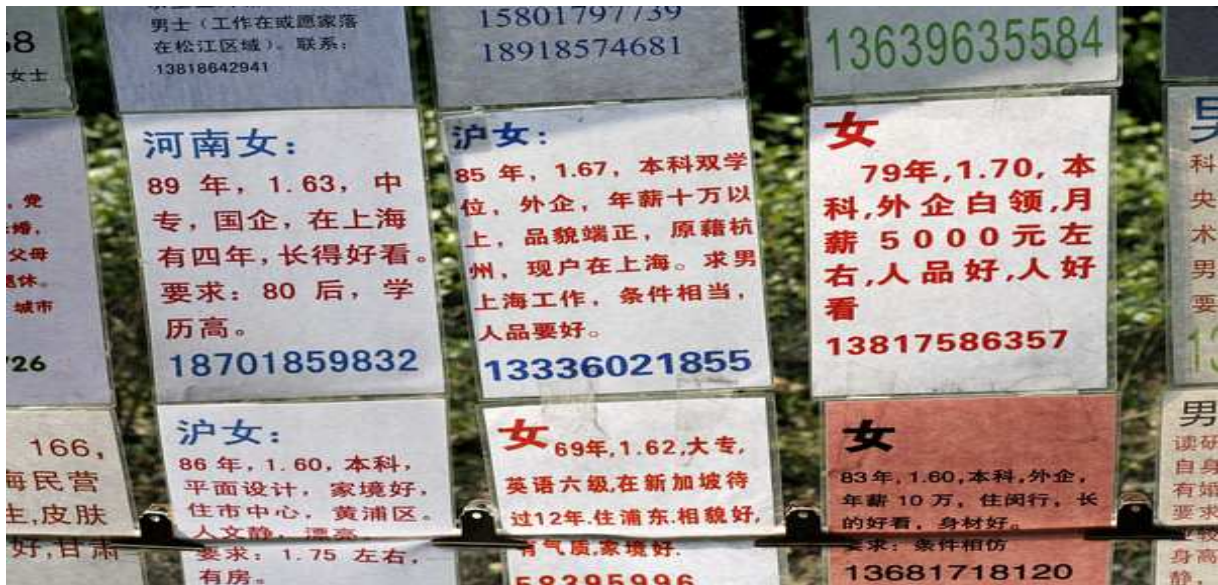 8
女士
男士（工作在或愿家落
在松江区域）。联系：
13818642941
15801797739
18918574681
13639635584
，党
婚，
父母
退休。
城市
726
河南女：
89 年，1.63，中
专，国企，在上海
有四年，长得好看。
要求：80 后，学
历高。
18701859832
沪女：
85 年，1.67，本科双学
位，外企，年薪十万以
上，品貌端正，原藉杭
州，现户在上海。求男
上海工作，条件相当，
人品要好。
13336021855
女
79年,1.70,本
科,外企白领,月
薪5000元左
右,人品好,人好
看
13817586357
男
科
央
术
男
要
166，
海民营
生,皮肤
好,甘肃
沪女：
86 年，1.60，本科，
平面设计，家境好，
住市中心，黄浦区。
人文静，漂亮。
要求：1.75 左右，
有房。
女 69年,1.62,大专,
英语六级,在新加坡待
过12年.住浦东.相貌好,
有气质,家境好.
58395996
女
83年,1.60,本科,外企,
年薪 10 万，住闵行，长
的好看，身材好。
要求：条件相仿
13681718120
男
读研
自身
有婚
要求
业较
身高
静，